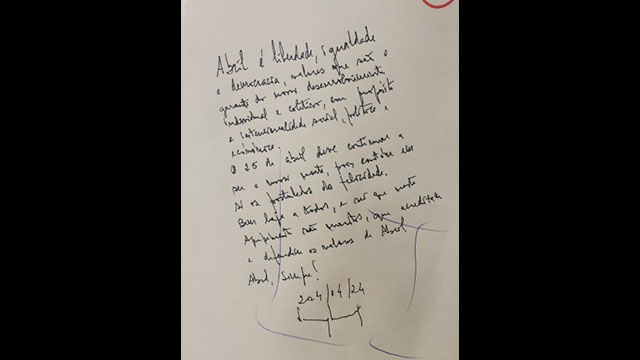 Abril é liberdade, igualdade
e democracia, valores que são o
garante do nosso desenvolvimento
individual e coletivo, em propósito
e intencionalidade social, político e
económico.
O 25 de abril deve continuar a
ser o nosso norte, pois contém em
si os postulados da felicidade.
Bem haja a todos, e sei que neste
Agrupamento são muitos, que acreditam
e defendem os valores de Abril.
Abril, Sempre!
2024/04/24